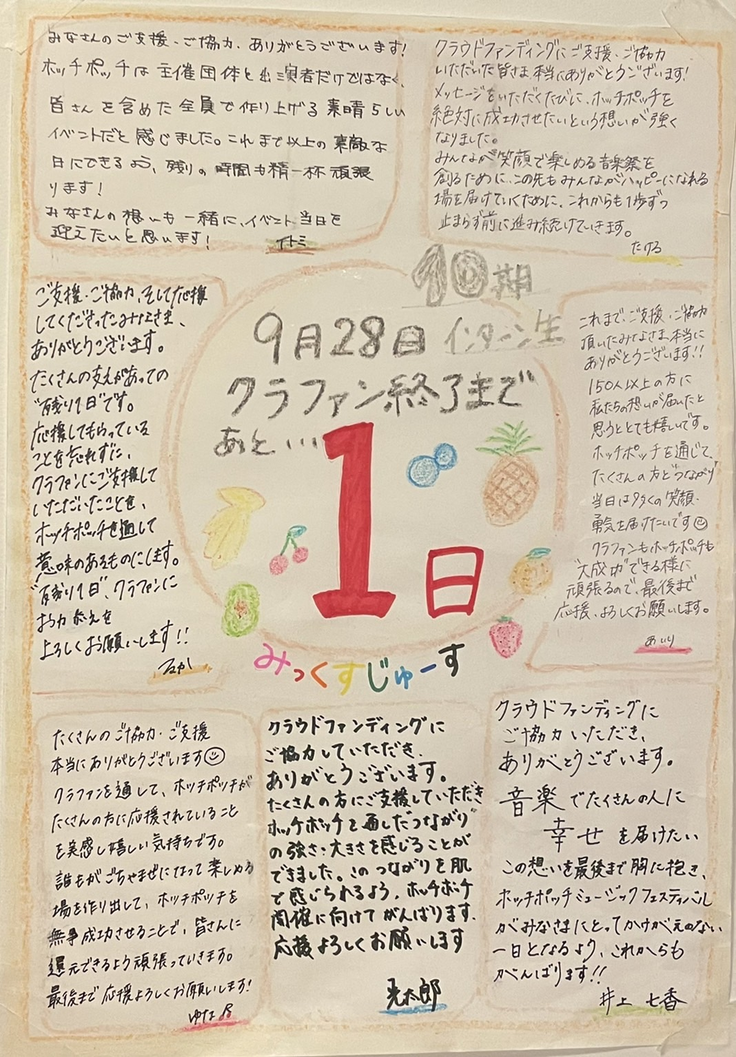 みなさんのご支援・ご協力、ありがとうございます!
ホッチポッチは主催団体と出演者だけではなく、
皆さんを含めた全員で作り上げる素晴らしい
イベントだと感じました。これまで以上の素敵な
日にできるよう、残りの時間も精一杯頑張
ります!
みなさんの想いも一緒に、イベント当日を
迎えたいと思います!
イトミ
クラウドファンディングにご支援・ご協力
いただいた皆さま本当にありがとうございます!
メッセージをいただくたびに、ホッチポッチを
絶対に成功させたいという想いが強く
なりました。
みんなが笑顔で楽しめる音楽祭を
創るために、この先もみんながハッピーになれる
場を届けていくために、これからも1歩ずつ
止まらず前に進み続けていきます。
たける
ご支援・ご協力、そして応援
してくださったみなさま、
ありがとうございます。
たくさんの支えがあっての
"残り1日"です。
応援してもらっている
ことを忘れずに、
クラファンにご支援して
いただいたことを、
ホッチポッチを通して
意味のあるものにします。
"残り1日"、クラファンに
お力添えを
よろしくお願いします!!
10期
インターン生
9月28日
クラファン終了まで
あと...
1日
みっくすじゅーす
これまで、ご支援・ご協力
頂いたみなさま、本当に
ありがとうございます!!
150人以上の方に
私たちの想いが届いたと
思うととても嬉しいです。
ホッチポッチを通じて、
たくさんの方とつながり
当日は多くの笑顔・
勇気を届けたいです
クラファンもホッチポッチも
"大成功"できる様に
頑張るので、最後まで
応援、よろしくお願いします。
あいり
たくさんのご協力・ご支援
本当にありがとうございます
クラファンを通して、ホッチポッチが
たくさんの方に応援されていること
を実感し嬉しい気持ちです。
誰もがごちゃまぜになって楽しめる
場を作り出して、ホッチポッチを
無事成功させることで、皆さんに
還元できるよう頑張っていきます。
最後まで応援よろしくお願いします!
クラウドファンディングに
ご協力していただき、
ありがとうございます。
たくさんの方にご支援していただき
ホッチポッチを通したつながり
の強さ・大きさを感じることが
できました。このつながりを肌
で感じられるよう、ホッチポッチ
開催に向けてがんばります。
応援よろしくお願いします
光太郎
クラウドファンディングに
ご協力いただき、
ありがとうございます。
音楽でたくさんの人に
幸せを届けたい
この想いを最後まで胸に抱き、
ホッチポッチミュージックフェスティバル
がみなさまにとってかけがえのない
一日となるよう、これからも
がんばります!!
井上 七香